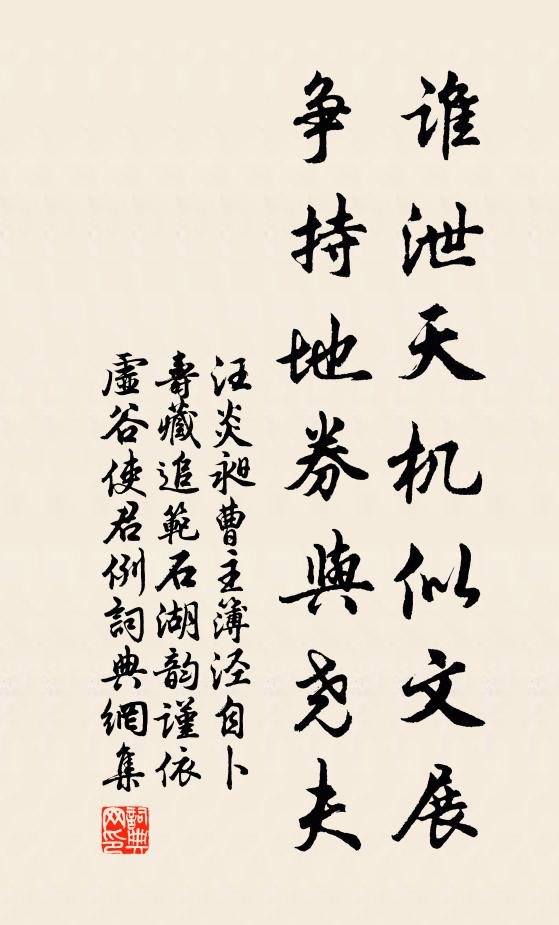 谁泄天机似文展
争持地券與尧夫
汪炎昶曹主簿泾自卜
壽藏追範石湖韵谨依
虛谷使君例詞典網集
詞典網印